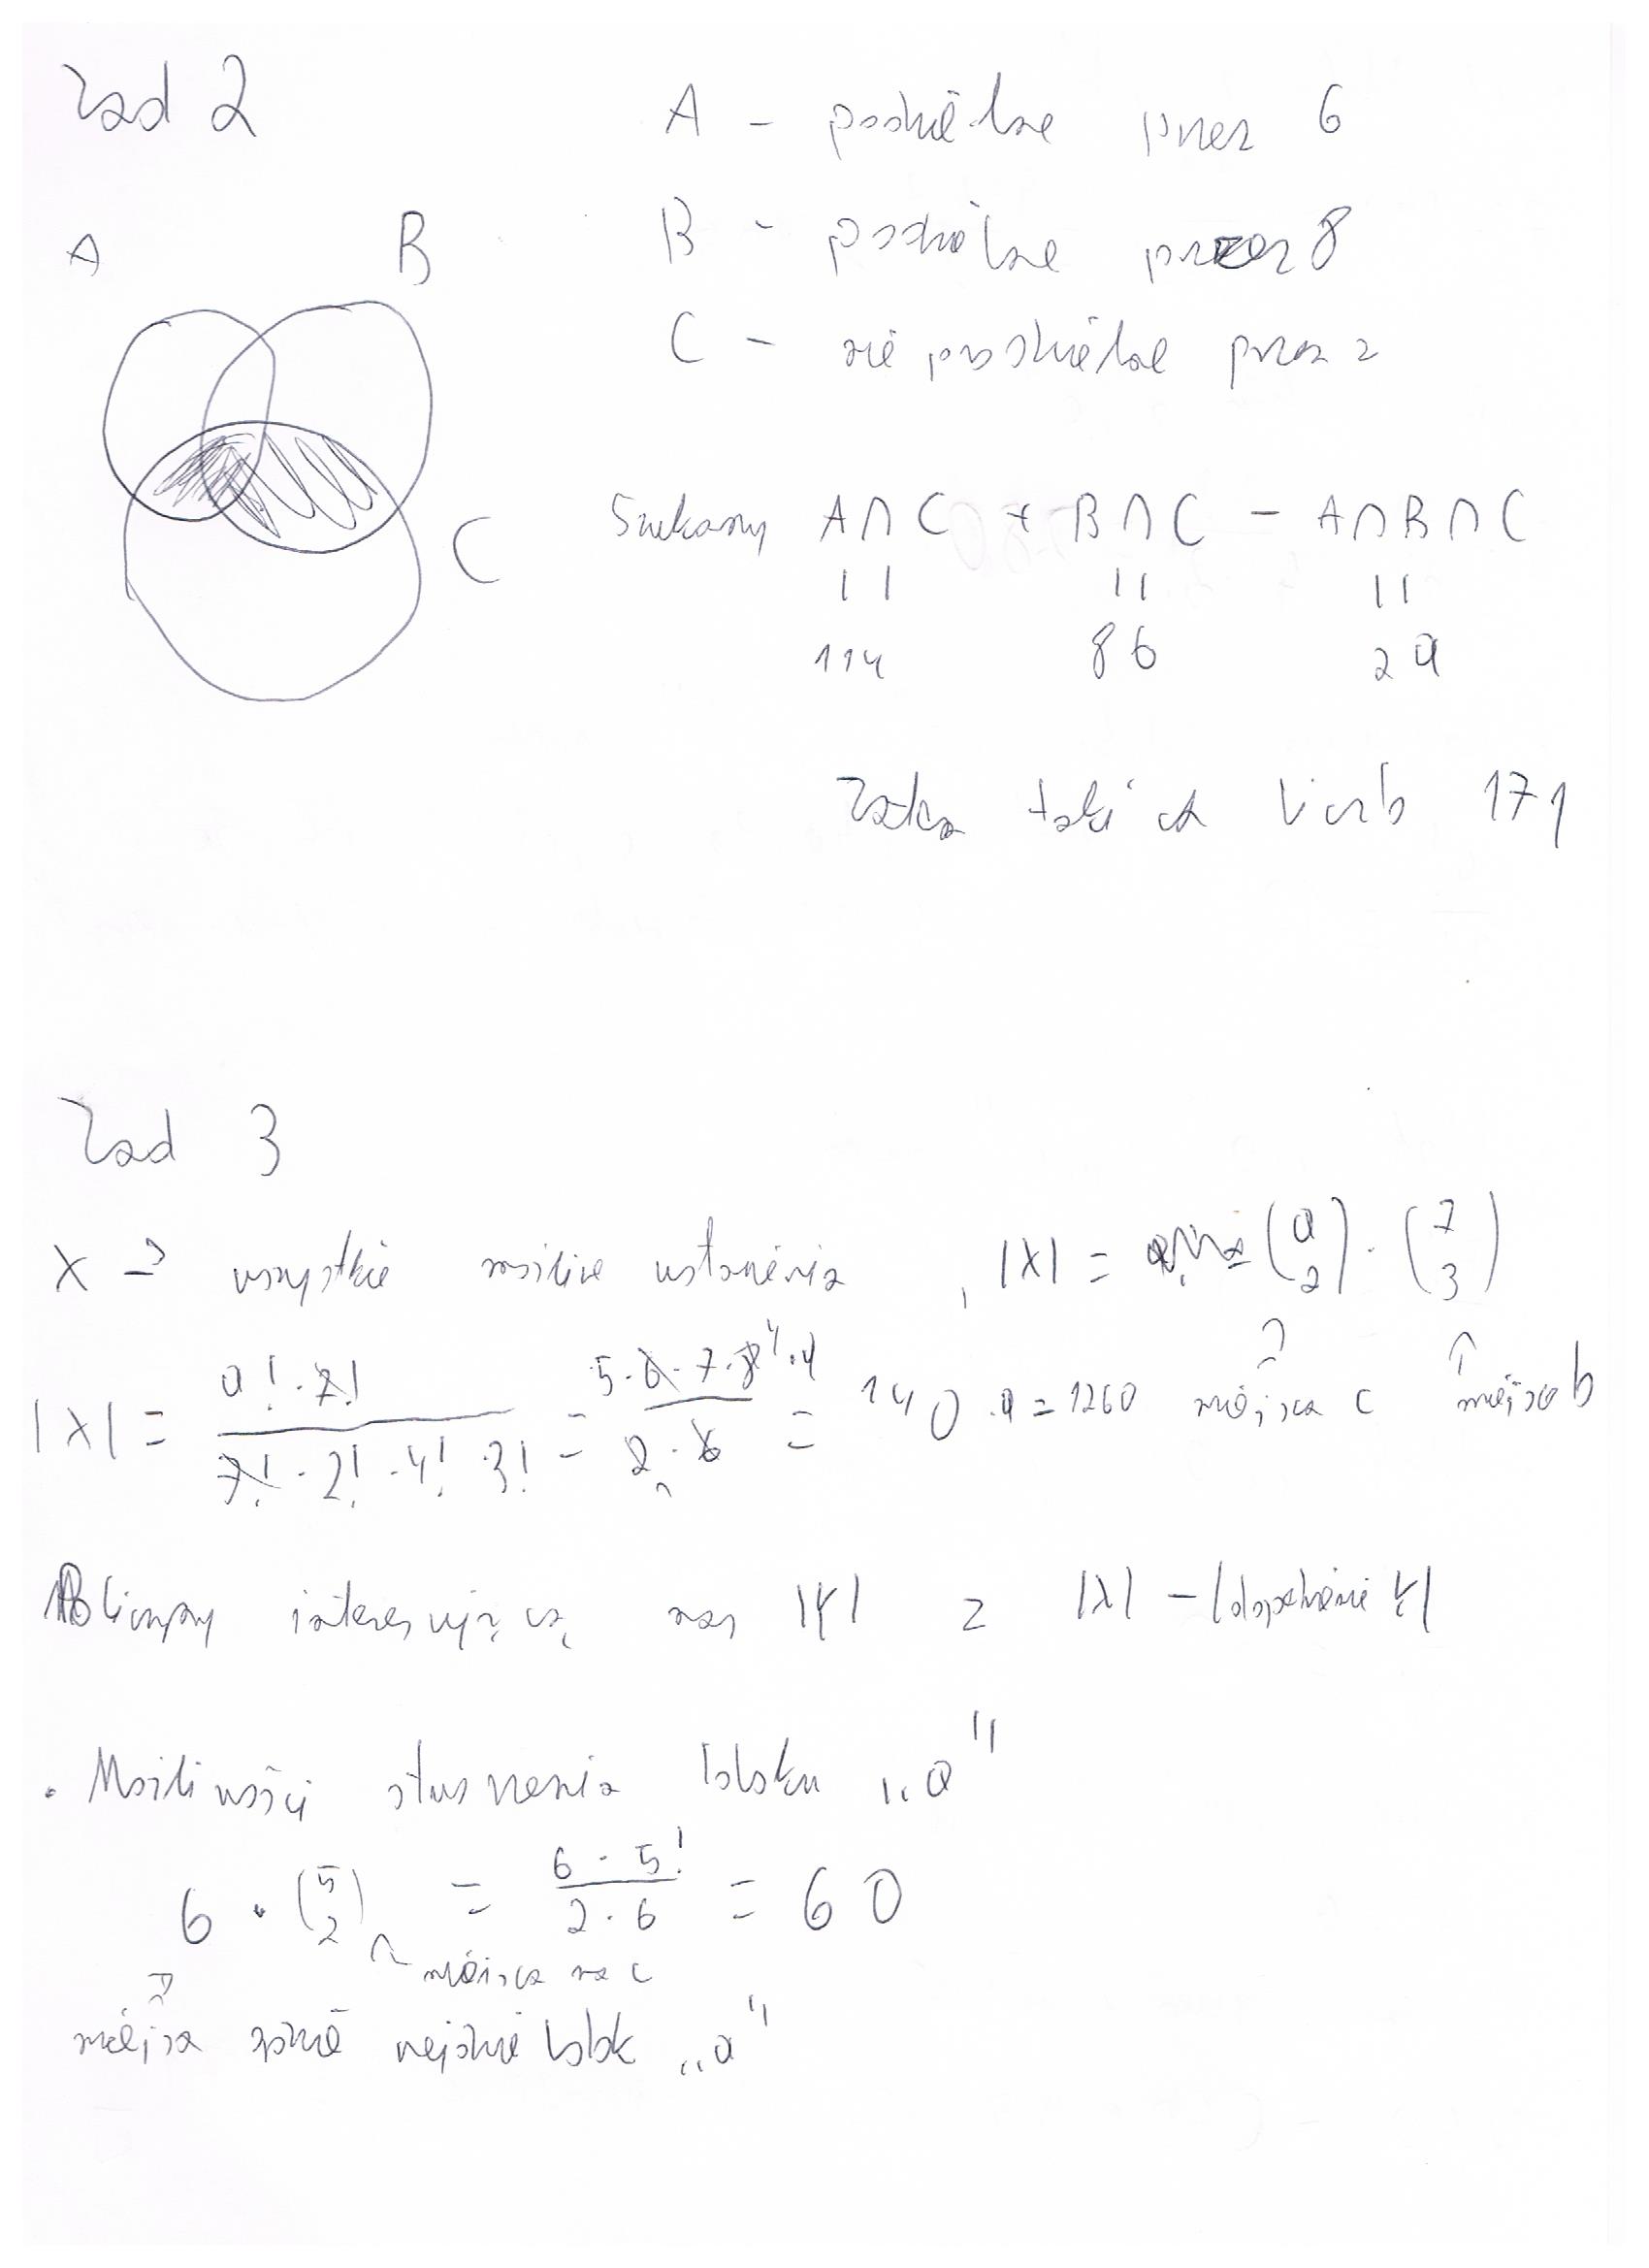 Zad 2
A - podzielne przez 6
A B B - podzielne przez 8
C - nie podzielne przez 7
Szukamy A∩C + B∩C - A∩B∩C
C || || ||
114 86 29
Zatem takich liczb 171
Zad 3
X → wszystkie możliwe ustawienia , |X| = (9 2) · (7 3)
|X| = 9! · 7! / 7! · 2! · 4! · 3! = 5·6·7·8 4 ·9 / 2·6 = 140 · 9 = 1260 miejsca c miejsca b
Policzmy interesującą nas |Y| z |X| - |dopełnienie Y|
· Możliwości stworzenia bloku „a"
6 · (5 2) = 6 · 5! / 2 · 6 = 60
miejsca na c
miejsca gdzie wejdzie blok „a"